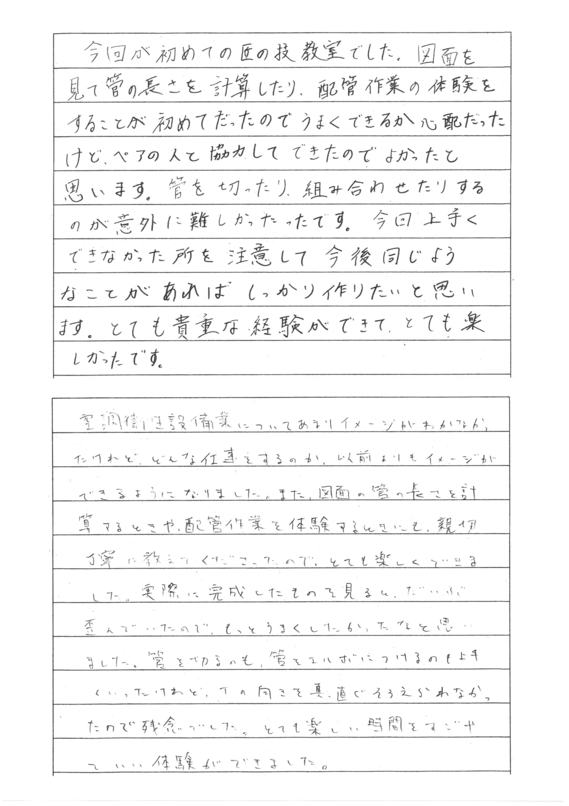 今回が初めての匠の技教室でした。図面を
見て管の長さを計算したり、配管作業の体験を
することが初めてだったのでうまくできるか心配だった
けど、ペアの人と協力してできたのでよかったと
思います。管を切ったり、組み合わせたりする
のが意外に難しかったです。今回上手く
できなかった所を注意して今後同じよう
なことがあればしっかり作りたいと思い
ます。とても貴重な経験ができて、とても楽
しかったです。
空調衛生設備業についてあまりイメージがわかなか
たけれど、どんな仕事をするのか、以前よりもイメージが
できるようになりました。また、図面の管の長さを計
算するときや、配管作業を体験するときにも、親切
丁寧に教えてくださったので、とても楽しくできま
した。実際に完成したものを見ると、だいぶ
歪んでいたので、もっとうまくしたかったなと思い
ました。管を切るのも、管をエルボにつけるのも上手
くいったけれど、Tの向きを真っ直ぐそろえられなかっ
たので残念でした。とても楽しい時間をすごせ
て いい体験ができました。